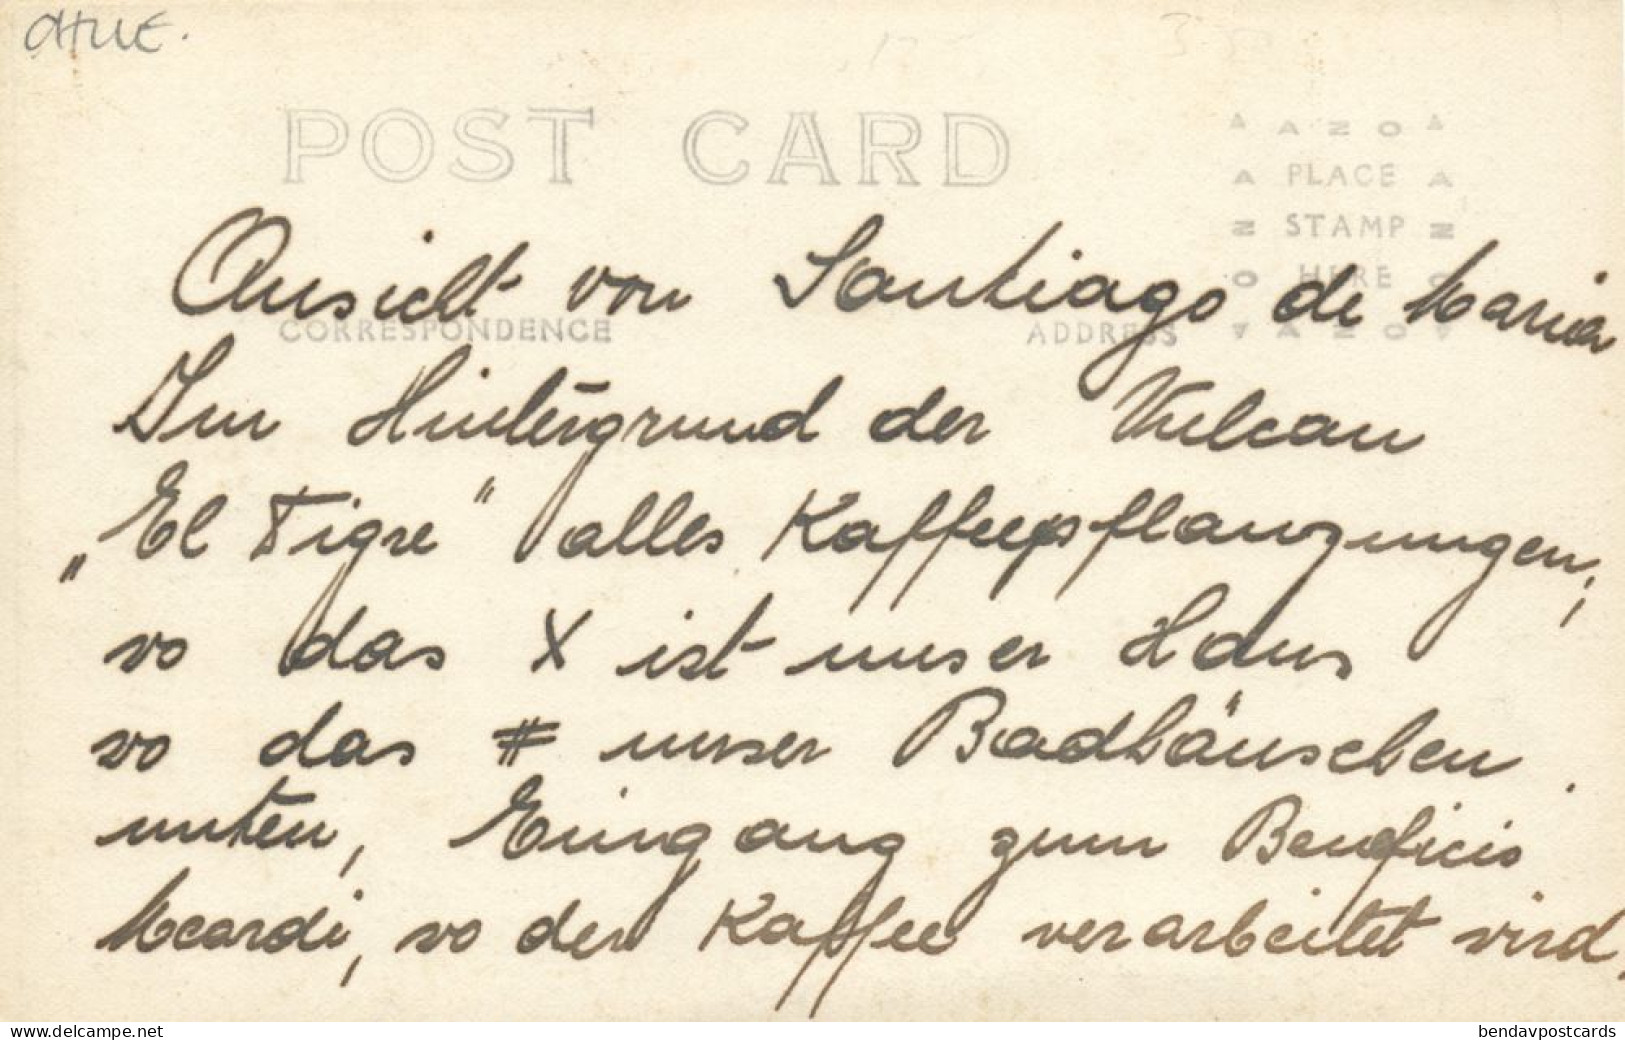 POST CARD
A A Z O A
A PLACE A
N STAMP N
O HERE O
V A Z O V
CORRESPONDENCE
ADDRESS
Ansicht von Santiago de Maria
Im Hintergrund der Vulcan
„El Tigre" alles Kaffeepflanzungen,
wo das X ist unser Haus
wo das # unser Badhäuschen.
unten, Eingang zum Beneficio
Meardi, wo der Kaffee verarbeitet wird.
www.delcampe.net
bendavpostcards